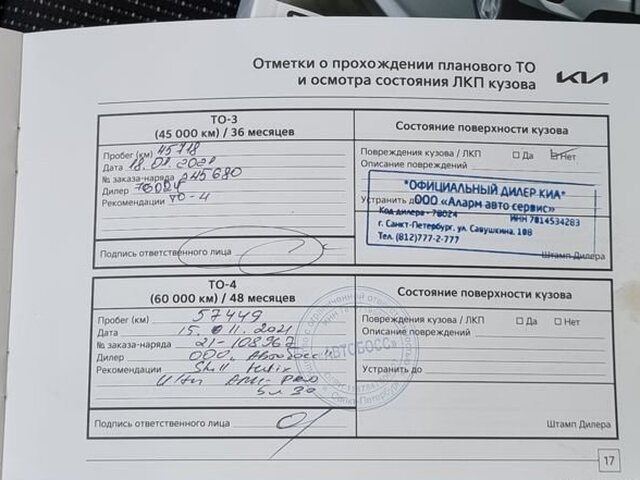 Отметки о прохождении планового ТО
и осмотра состояния ЛКП кузова
KIA
ТО-3
(45 000 км) / 36 месяцев
Состояние поверхности кузова
Пробег (км) 45718
Дата 18.01.2021
№ заказа-наряда 245680
Дилер 78024
Рекомендации ТО-4
Подпись ответственного лица
Повреждения кузова / ЛКП Да Нет
Описание повреждений
Устранить до
"ОФИЦИАЛЬНЫЙ ДИЛЕР КИА"
ООО «Аларм авто сервис»
Код дилера - 78024 ИНН 7814534283
г. Санкт-Петербург, ул. Савушкина, 108
Тел. (812)777-2-777
Штамп Дилера
ТО-4
(60 000 км) / 48 месяцев
Состояние поверхности кузова
Пробег (км) 57449
Дата 15.011.2021
№ заказа-наряда 21-108967
Дилер ООО "Автобосс"
Рекомендации Shell Helix
Ultra
5л 30
Подпись ответственного лица
Повреждения кузова / ЛКП Да Нет
Описание повреждений
Устранить до
Штамп Дилера
АВТОБОСС»
Санкт-Петербург
17